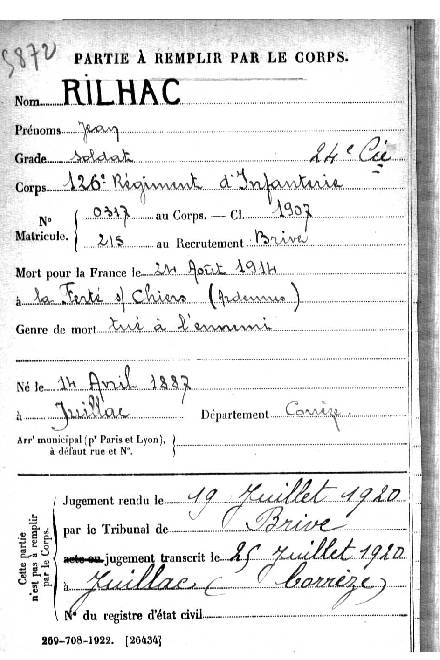 5872
PARTIE À REMPLIR PAR LE CORPS.
Nom RILHAC
Prénoms Jean
Grade soldat 24e Cie
Corps 126e Régiment d'Infanterie
N° Matricule. { 0317 au Corps. — Cl. 1907
215 au Recrutement Brive
Mort pour la France le 24 Août 1914
à la Ferté s/ Chiers (Ardennes)
Genre de mort tué à l'ennemi
Né le 14 Avril 1887
à Juillac Département Corrèze
Arr' municipal (p' Paris et Lyon),
à défaut rue et N°.
Cette partie n'est pas à remplir par le Corps.
Jugement rendu le 19 Juillet 1920
par le Tribunal de Brive
acte ou jugement transcrit le 25 Juillet 1920
à Juillac (Corrèze)
N° du registre d'état civil
269-708-1922. [26434]